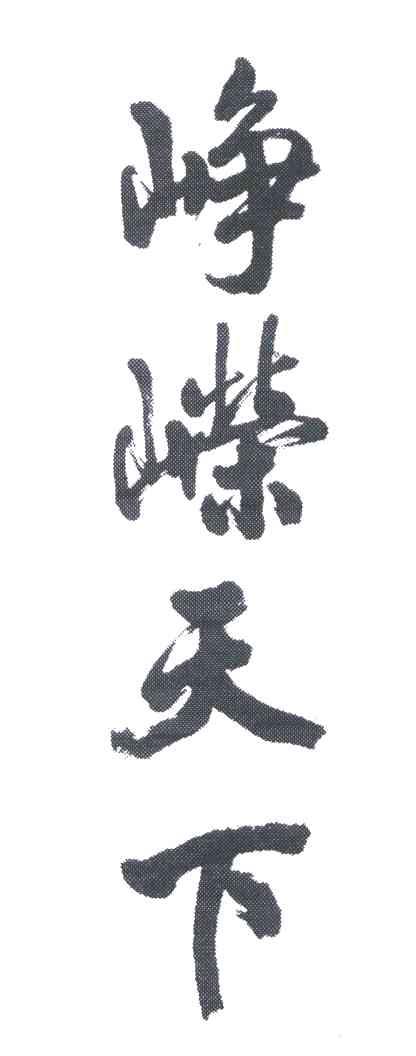 峥嵘天下